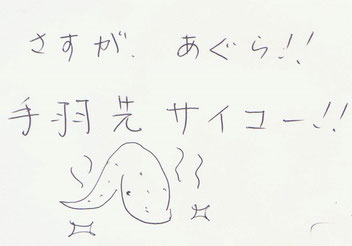 さすが、あぐら!!
手羽先サイコー!!